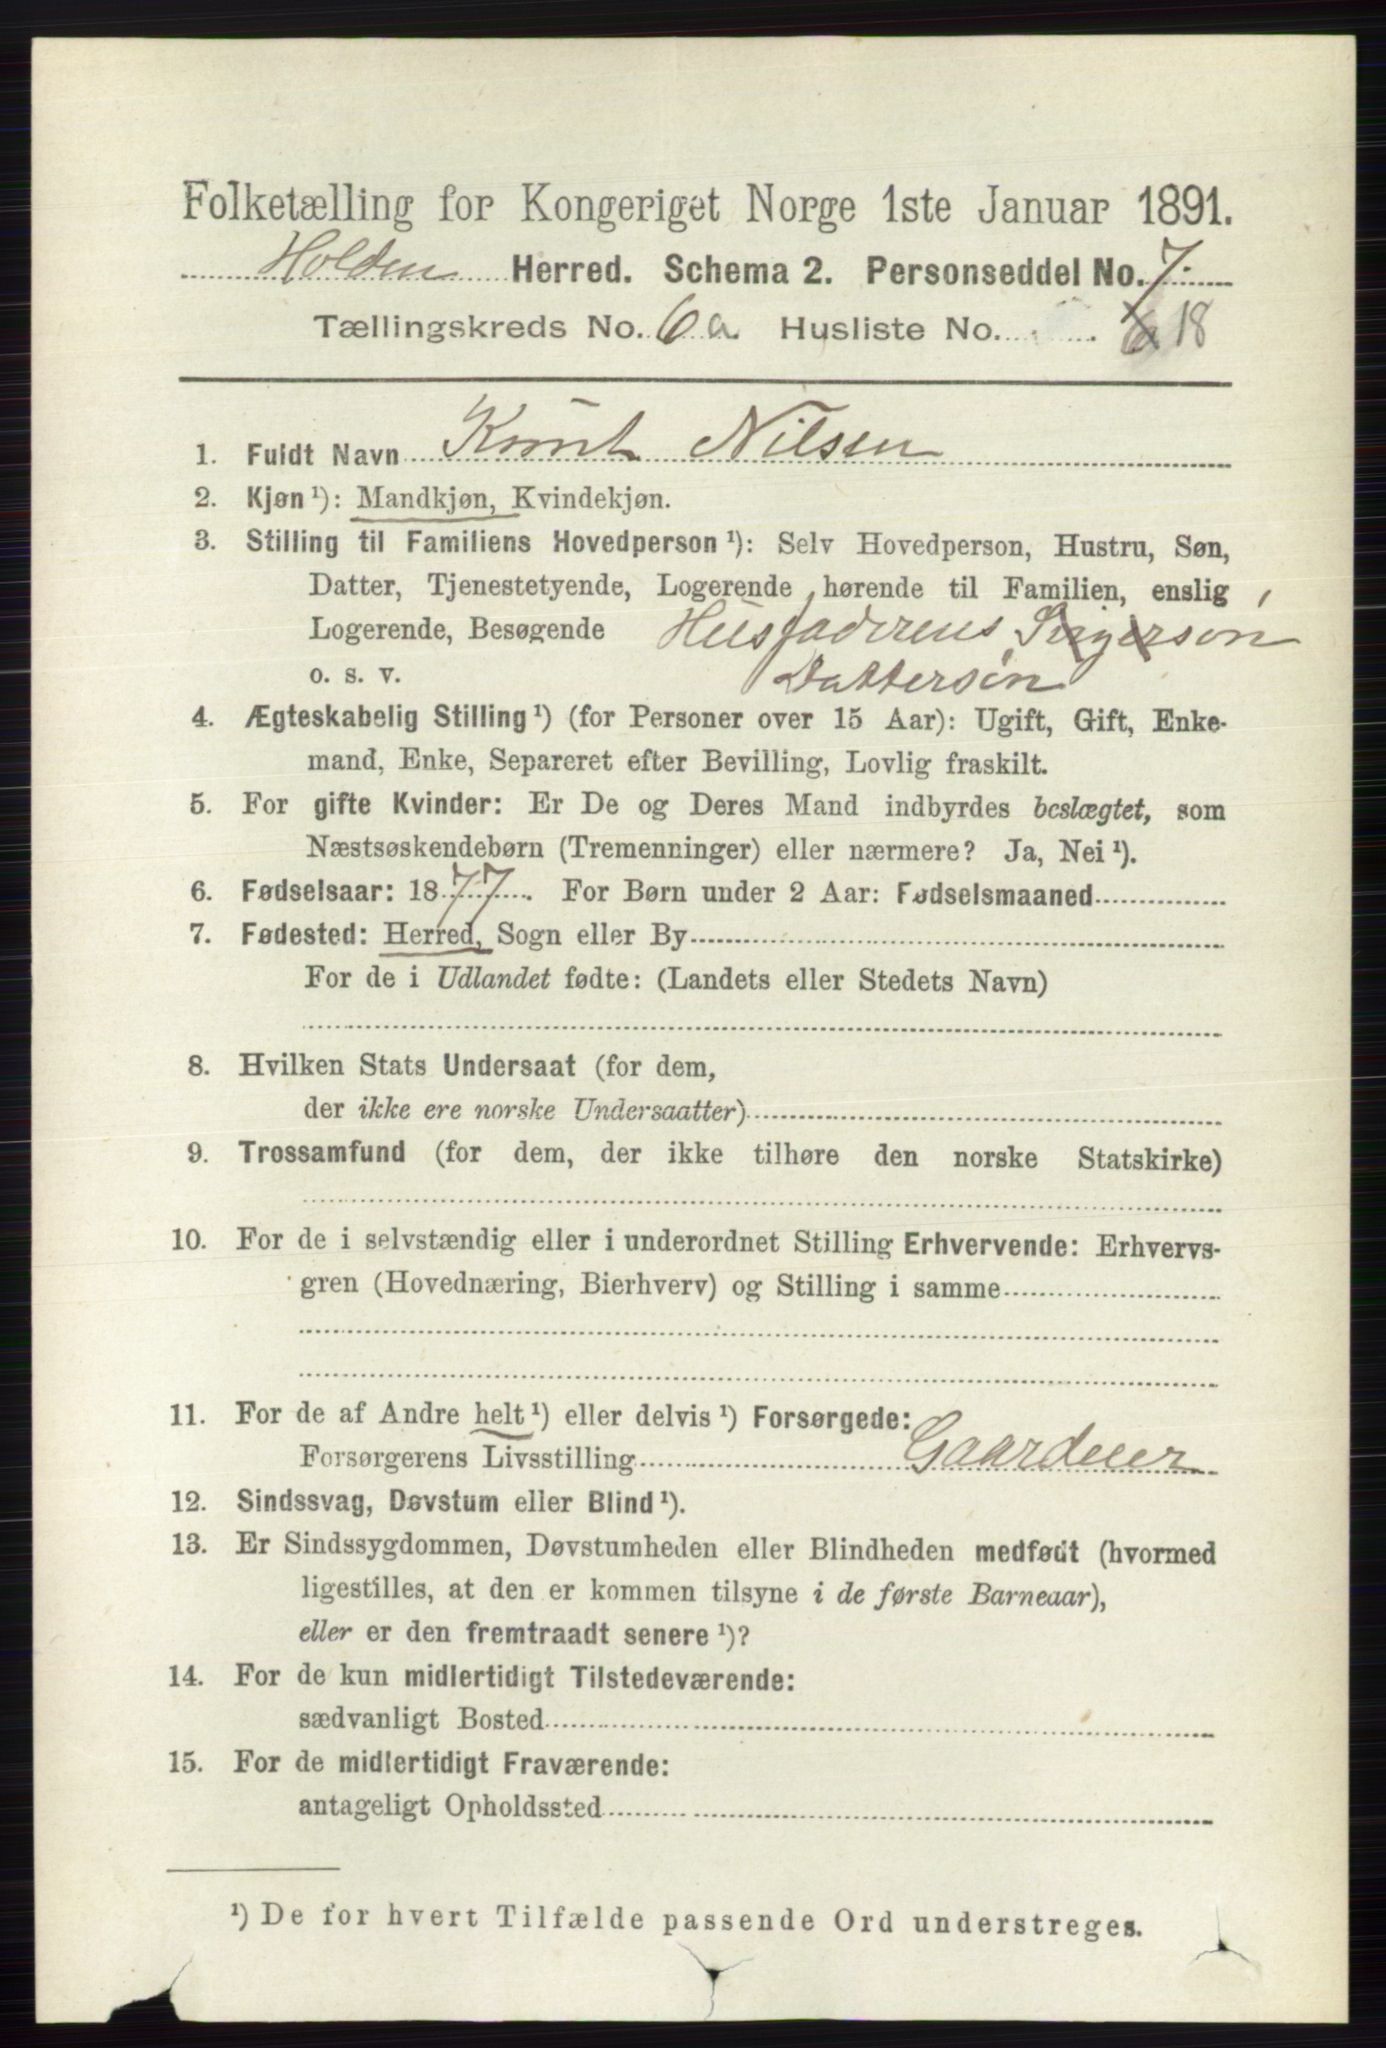 Folketælling for Kongeriget Norge 1ste Januar 1891.
Holden Herred. Schema 2. Personseddel No. 7
Tællingskreds No. 6a Husliste No. 6 18
1. Fuldt Navn Knut Nilsen
2. Kjøn ¹): Mandkjøn, Kvindekjøn.
3. Stilling til Familiens Hovedperson ¹): Selv Hovedperson, Hustru, Søn,
Datter, Tjenestetyende, Logerende hørende til Familien, enslig
Logerende, Besøgende Husfaderens
o. s. v. Dattersön
4. Ægteskabelig Stilling ¹) (for Personer over 15 Aar): Ugift, Gift, Enke-
mand, Enke, Separeret efter Bevilling, Lovlig fraskilt.
5. For gifte Kvinder: Er De og Deres Mand indbyrdes beslægtet, som
Næstsøskendebørn (Tremenninger) eller nærmere? Ja, Nei ¹).
6. Fødselsaar: 1877. For Børn under 2 Aar: Fødselsmaaned
7. Fødested: Herred, Sogn eller By
For de i Udlandet fødte: (Landets eller Stedets Navn)
8. Hvilken Stats Undersaat (for dem,
der ikke ere norske Undersaatter)
9. Trossamfund (for dem, der ikke tilhøre den norske Statskirke)
10. For de i selvstændig eller i underordnet Stilling Erhvervende: Erhvervs-
gren (Hovednæring, Bierhverv) og Stilling i samme
11. For de af Andre helt ¹) eller delvis ¹) Forsørgede:
Forsørgerens Livsstilling Gaardeier
12. Sindssvag, Døvstum eller Blind ¹).
13. Er Sindssygdommen, Døvstumheden eller Blindheden medfødt (hvormed
ligestilles, at den er kommen tilsyne i de første Barneaar),
eller er den fremtraadt senere ¹)?
14. For de kun midlertidigt Tilstedeværende:
sædvanligt Bosted
15. For de midlertidigt Fraværende:
antageligt Opholdssted
¹) De for hvert Tilfælde passende Ord understreges.